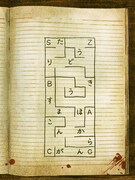 S た Z
り ど
う き
B う
す ま は A
こ ん か
ら
C が ん G